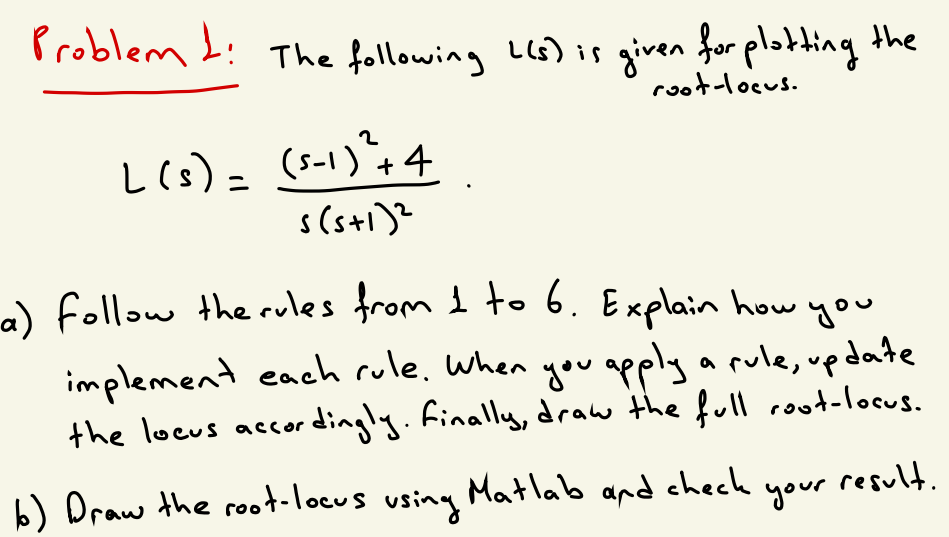 Problem 1: The following L(s) is given for plotting the
root-locus.
L(s) = ((s-1)²+4)/(s(s+1)²).
a) Follow the rules from 1 to 6. Explain how you
implement each rule. When you apply a rule, update
the locus accordingly. Finally, draw the full root-locus.
b) Draw the root-locus using Matlab and check your result.